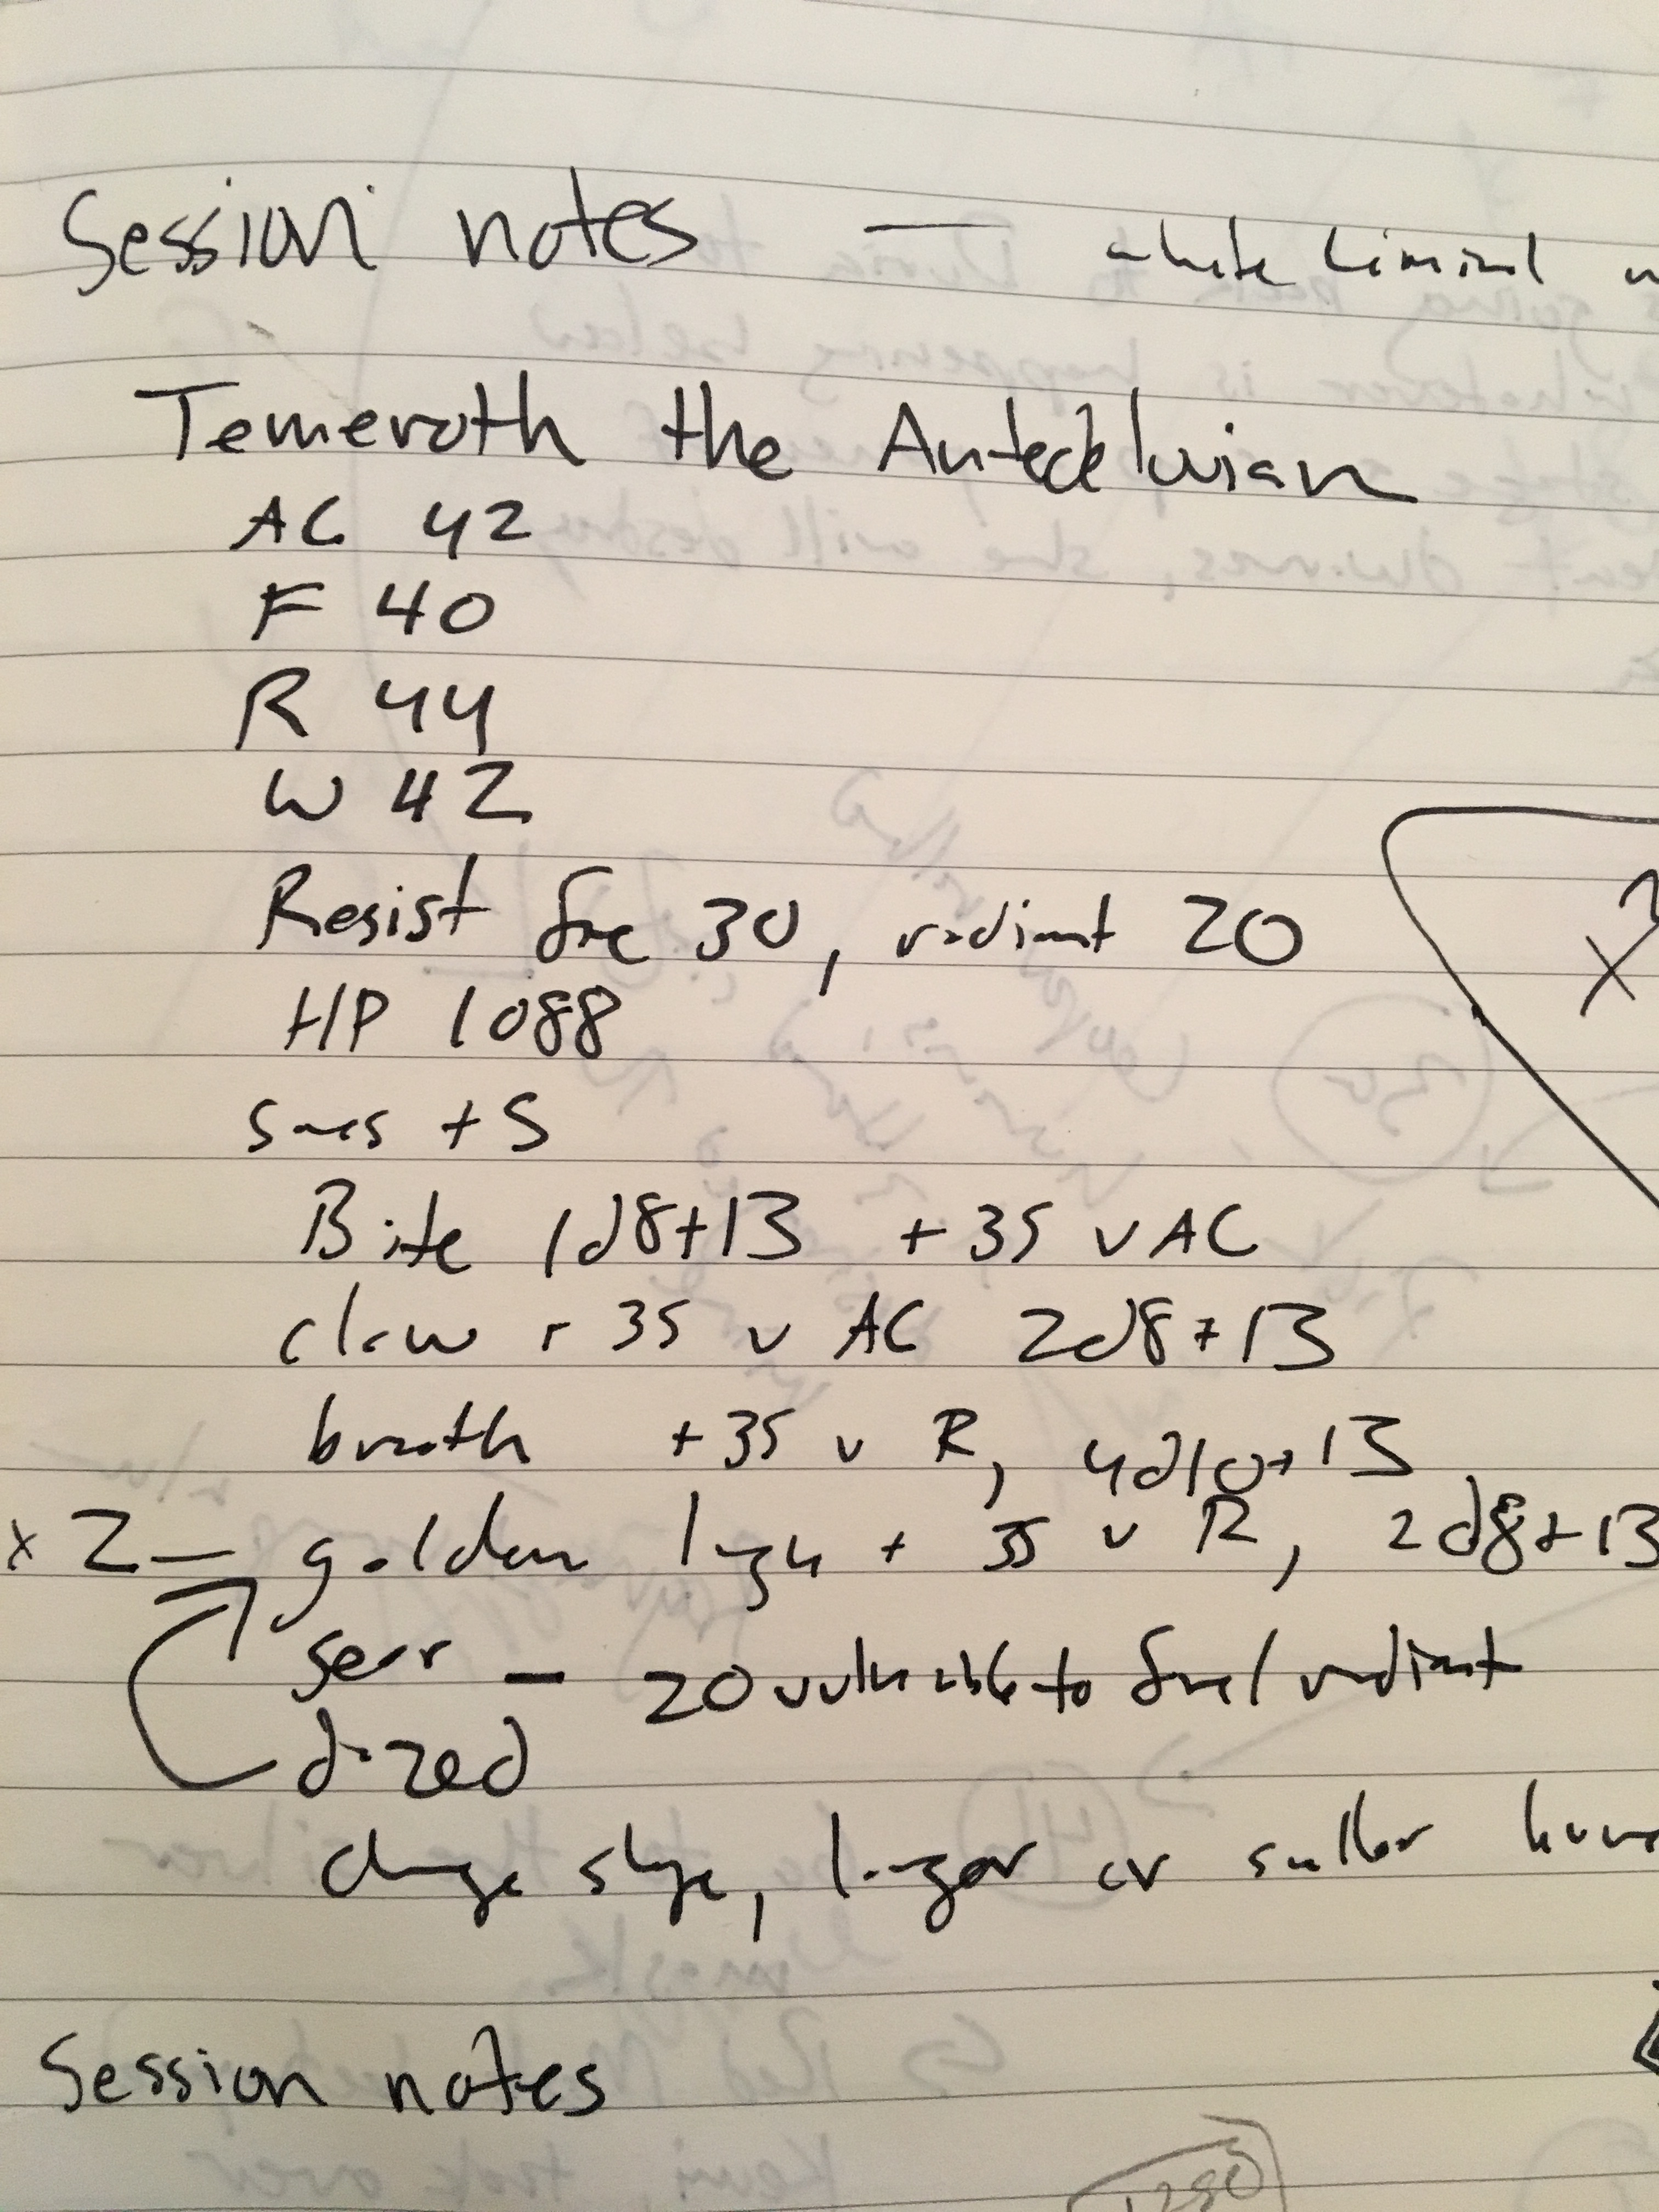 Session notes — white liminal
Temeroth the Antedeluvian
AC 42
F 40
R 44
W 42
Resist fire 30, radiant 20
HP 1088
saves +5
Bite 1d8+13 +35 v AC
claw +35 v AC 2d8+13
breath +35 v R, 4d10+13
x2 — golden +35 v R, 2d8+13
sear — 20 vulnerable to fire/radiant
dazed
change shape, larger or smaller
Session notes